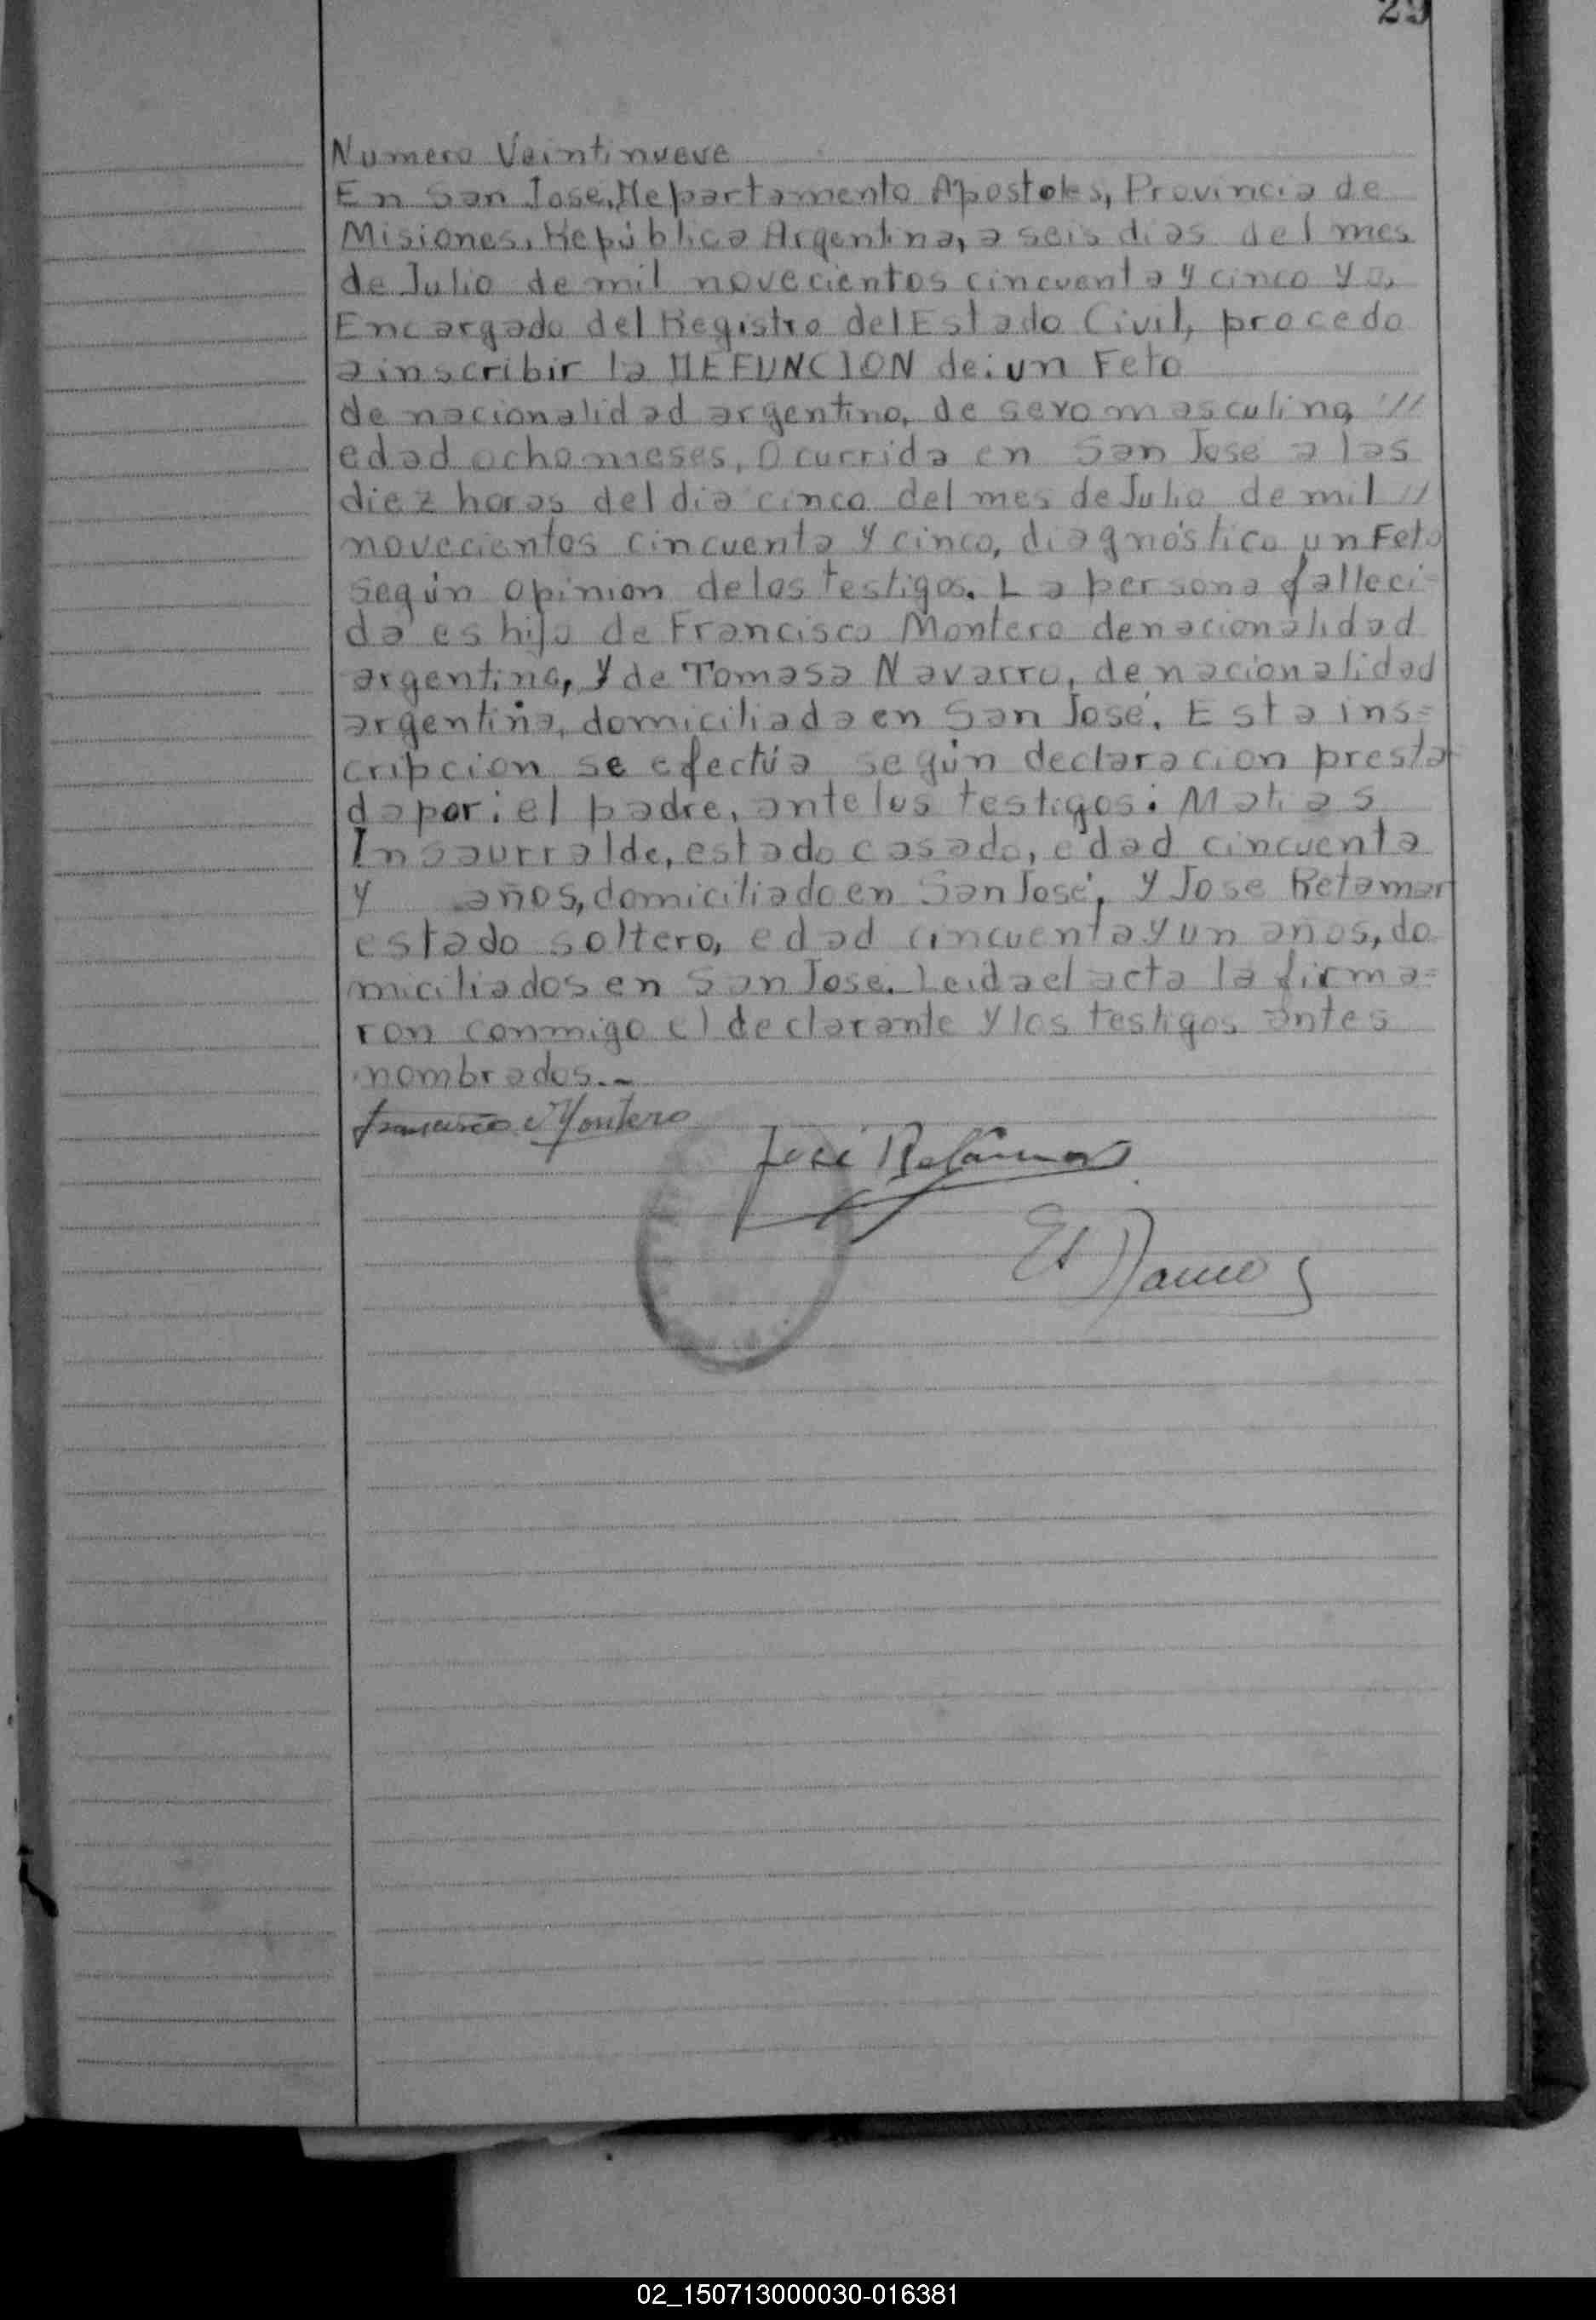 29
Numero Veintinueve
En San Jose, Departamento Apostoles, Provincia de
Misiones, República Argentina, a seis dias del mes
de Julio de mil novecientos cincuenta y cinco yo,
Encargado del Registro del Estado Civil, procedo
a inscribir la DEFUNCION de: un Feto
de nacionalidad argentino, de sexo masculino, ///
edad ocho meses, Ocurrida en San Jose a las
diez horas del dia cinco del mes de Julio de mil //
novecientos cincuenta y cinco, diagnóstico un Feto
según opinion de los testigos. La persona falleci-
da es hijo de Francisco Montero de nacionalidad
argentino, y de Tomasa Navarro, de nacionalidad
argentina, domiciliada en San José. Esta ins=
cripcion se efectúa según declaracion presta-
da por: el padre, ante los testigos: Matias
Insaurralde, estado casado, edad cincuenta
y años, domiciliado en San José, y Jose Retamar
estado soltero, edad cincuenta y un años, do
miciliados en San Jose. Leida el acta la firma=
ron conmigo el declarante y los testigos antes
nombrados.-
Francisco Montero
José Retamar
02_150713000030-016381